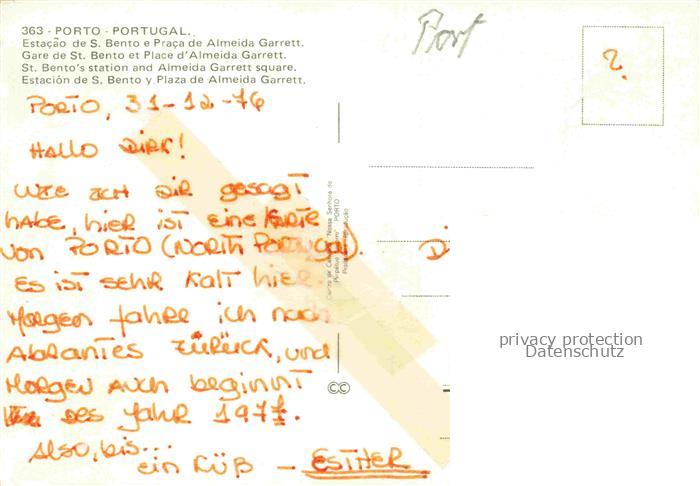 363 - PORTO - PORTUGAL.
Estação de S. Bento e Praça de Almeida Garrett.
Gare de St. Bento et Place d'Almeida Garrett.
St. Bento's station and Almeida Garrett square.
Estación de S. Bento y Plaza de Almeida Garrett.
Port
?
PORTO, 31-12-76
HALLO DIRK!
WIE ICH DIR gesagt
habe, hier ist eine Karte
von PORTO (NORTH PORTUGAL).
Es ist sehr kalt hier.
Morgen fahre ich nach
Abrantes zurück, und
Morgen auch beginnt
des Jahr 1977.
Also, bis...
ein Küß - ESTHER
PORTO
privacy protection
Datenschutz